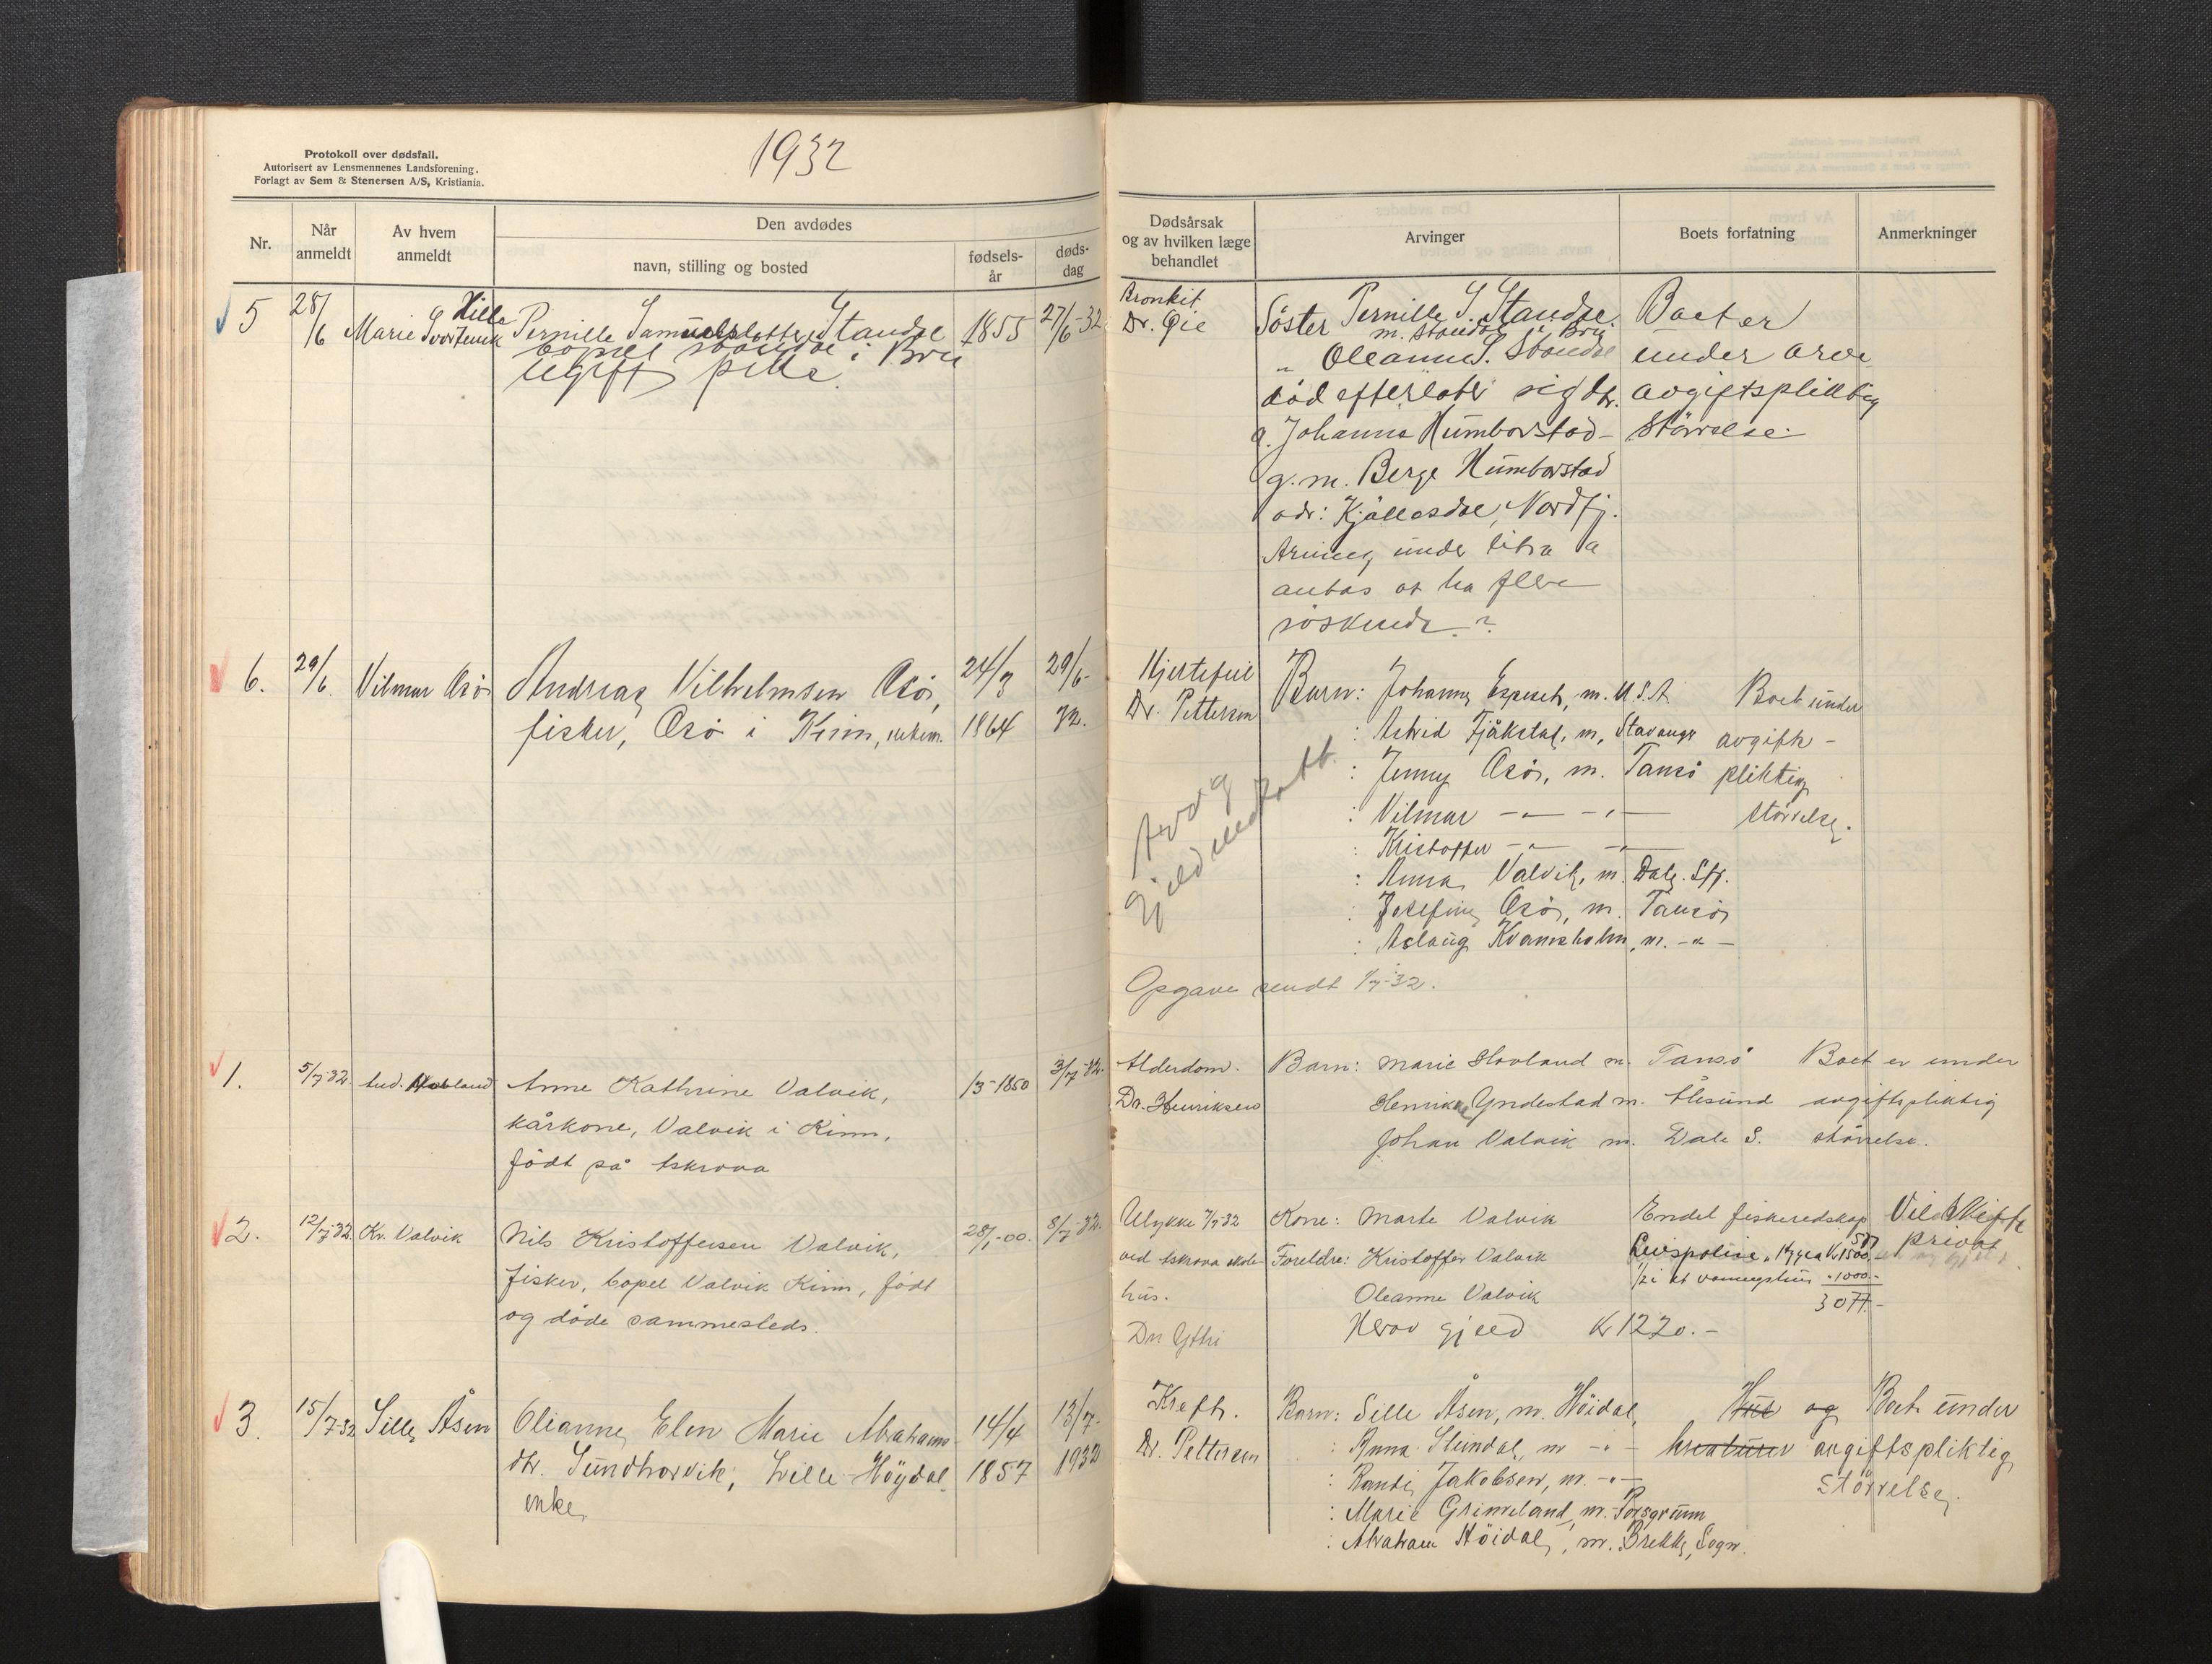 Protokoll over dødsfall.
Autorisert av Lensmennenes Landsforening.
Forlagt av Sem & Stenersen A/S, Kristiania.
1932
Nr.
Når anmeldt
Av hvem anmeldt
Den avdødes
navn, stilling og bosted
fødsels-år
døds-dag
Dødsårsak og av hvilken læge behandlet
Arvinger
Boets forfatning
Anmerkninger
5
28/6
Hille
Marie
Pernille Samuelsdotter Standal
bopel Standal i Bru
ugift pike.
1855
27/6-32
Bronkit
Dr. Gie
Söster Pernille S. Standal
m. Standal i Bru.
„ Oleanne S. Standal
död efterlatt sig dtr.
a. Johanna Humborstad
g. m. Berge Humborstad
adr: Kjöllesdal, Nordfj.
Arving under litra a
antas at ha flere
söskende.?
Boet er
under arve
avgiftspliktig
störrelse.
6.
29/6.
Vilmar Osö
Andreas Vilhelmsen Osö,
fisker, Osö i Kinn,
24/3
1864
29/6-
32.
Hjertefeil
Dr. Pettersen
Barn: Johanna Espeset, m. U.S.A
: Astrid Fjåkstad, m, Stavanger
: Jenny Osö, m. Tansö
: Vilmar -„- -„-
: Kristoffer -„- -„-
: Anna Valvik, m. Dale. Sfj.
: Josefine Osö, m. Tansö
: Aslaug Kvamsholm, m. -„-
Boet under
avgifts-
pliktig
störrelse.
Opgave sendt 1/7-32.
1.
5/7-32.
And. Hovland
Anne Kathrine Valvik,
kårkone, Valvik i Kinn,
födt på Askrova
/3-1850
3/7-32.
Alderdom.
Dr. Henriksen
Barn: Marie Hovland m. Tansö
Henrikke Yndestad m. Ålesund
Johan Valvik m. Dale S.
Boet er under
avgiftspliktig
störrelse.
2.
12/7-32.
Kr. Valvik
Nils Kristoffersen Valvik,
fisker, bopel Valvik Kinn, födt
og döde sammesteds.
28/1-00.
8/7-32.
Ulykke 7/7-32
ved Askrova skole-
hus.
Dr Gthi
Kone: Marte Valvik
Foreldre: Kristoffer Valvik
Oleanne Valvik
Herav gjeld Kr 1220.-
Endel fiskeredskap
Livspolise, Kr 1500.-
1/2 i et vaaningshus - 1000.-
3077.-
Vil skifte
privat
3.
15/7-32
Sille Åsen
Olianne Elen Marie Abrahams-
dtr. Sundhorvik, Lille-Höydal
enke
14/4
1857
13/7-
1932
Kreft.
Dr. Pettersen
Barn: Sille Åsen, m. Höidal,
: Anna Steindal, m -„-
: Randi Jakobsen, m. -„-
: Marie Grimeland, m. Porsgrunn
: Abraham Höidal, m. Brekke, Sogn.
Hus og
kreaturer
Boet under
avgiftspliktig
störrelse.